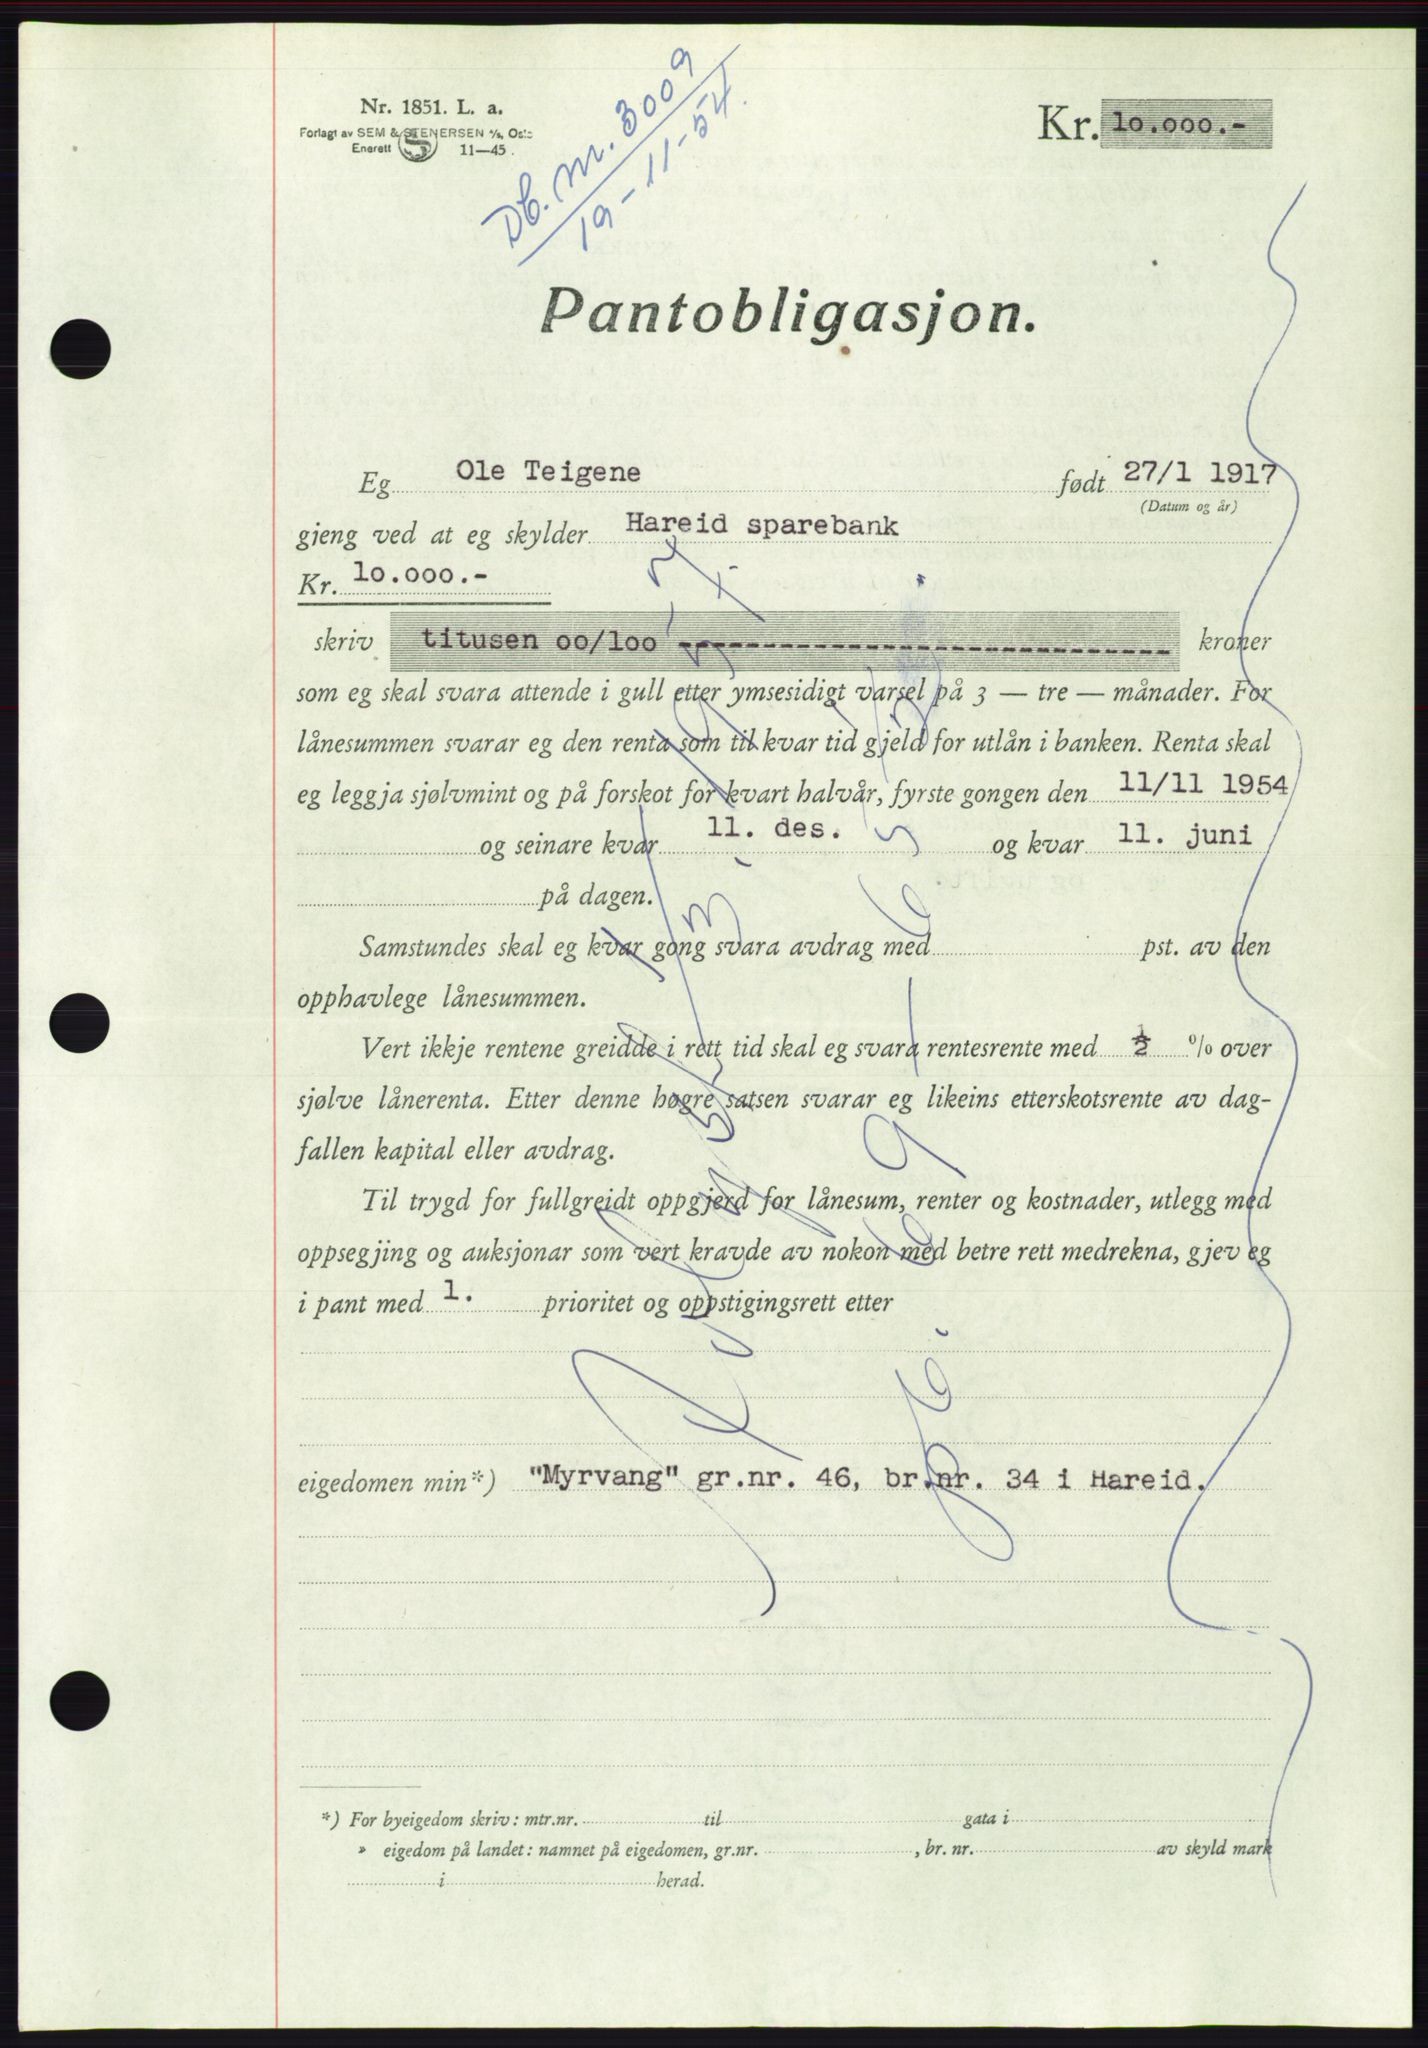 Nr. 1851. L. a.
Forlagt av SEM & STENERSEN A/S, Oslo
Enerett 11—45.
Db. nr. 3009
19-11-54.
Kr. 10.000.-
Pantobligasjon.
Eg Ole Teigene født 27/1 1917
(Datum og år)
gjeng ved at eg skylder Hareid sparebank
Kr. 10.000.-
skriv titusen 00/100 ------------------------------ kroner
som eg skal svara attende i gull etter ymsesidigt varsel på 3 — tre — månader. For
lånesummen svarar eg den renta som til kvar tid gjeld for utlån i banken. Renta skal
eg leggja sjølvmint og på forskot for kvart halvår, fyrste gongen den 11/11 1954
og seinare kvar 11. des. og kvar 11. juni
på dagen.
Samstundes skal eg kvar gong svara avdrag med pst. av den
opphavlege lånesummen.
Vert ikkje rentene greidde i rett tid skal eg svara rentesrente med ½ % over
sjølve lånerenta. Etter denne høgre satsen svarar eg likeins etterskotsrente av dag-
fallen kapital eller avdrag.
Til trygd for fullgreidt oppgjerd for lånesum, renter og kostnader, utlegg med
oppsegjing og auksjonar som vert kravde av nokon med betre rett medrekna, gjev eg
i pant med 1. prioritet og oppstigingsrett etter
eigedomen min*) "Myrvang" gr.nr. 46, br.nr. 34 i Hareid.
*) For byeigedom skriv: mtr.nr. til gata i
» eigedom på landet: namnet på eigedomen, gr.nr. , br. nr. av skyld mark
i herad.